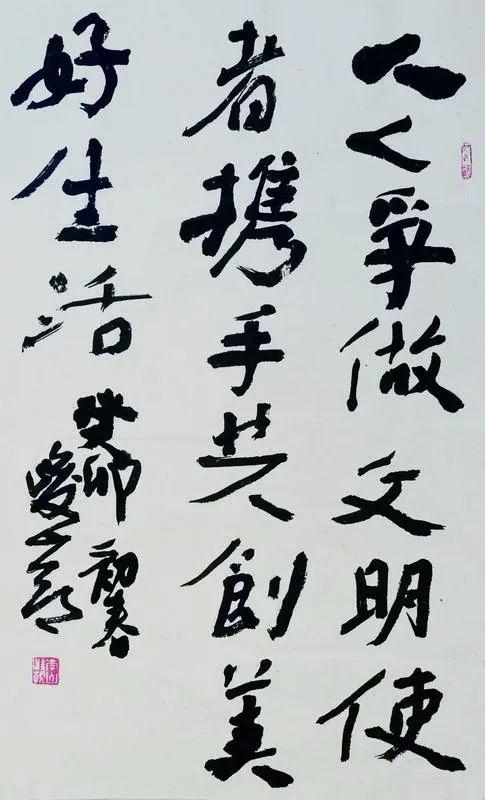 人人爭做文明使
者携手共創美
好生活
癸卯初春